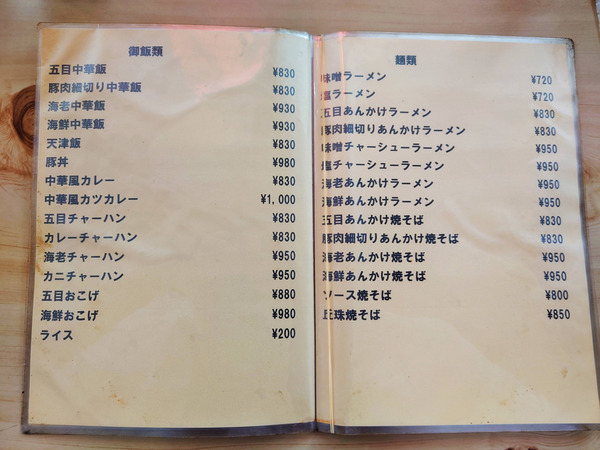 御飯類
五目中華飯 ¥830
豚肉細切り中華飯 ¥830
海老中華飯 ¥930
海鮮中華飯 ¥930
天津飯 ¥830
豚丼 ¥980
中華風カレー ¥830
中華風カツカレー ¥1,000
五目チャーハン ¥830
カレーチャーハン ¥830
海老チャーハン ¥950
カニチャーハン ¥950
五目おこげ ¥880
海鮮おこげ ¥980
ライス ¥200
麺類
味噌ラーメン ¥720
塩ラーメン ¥720
五目あんかけラーメン ¥830
豚肉細切りあんかけラーメン ¥830
味噌チャーシューラーメン ¥950
塩チャーシューラーメン ¥950
海老あんかけラーメン ¥950
海鮮あんかけラーメン ¥950
五目あんかけ焼そば ¥830
豚肉細切りあんかけ焼そば ¥830
海老あんかけ焼そば ¥950
海鮮あんかけ焼そば ¥950
ソース焼そば ¥800
珠焼そば ¥850